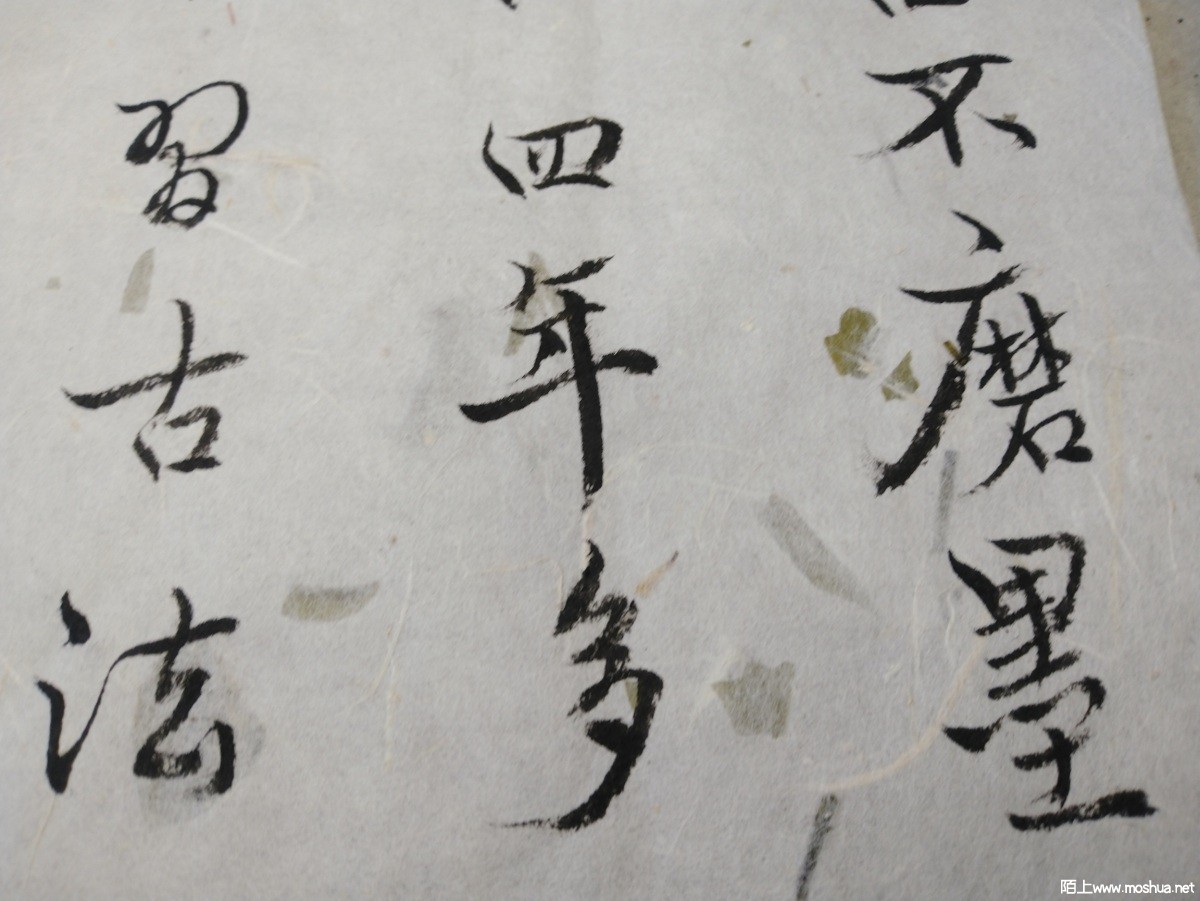 不磨墨
四年多
習古法
陌上www.moshua.net